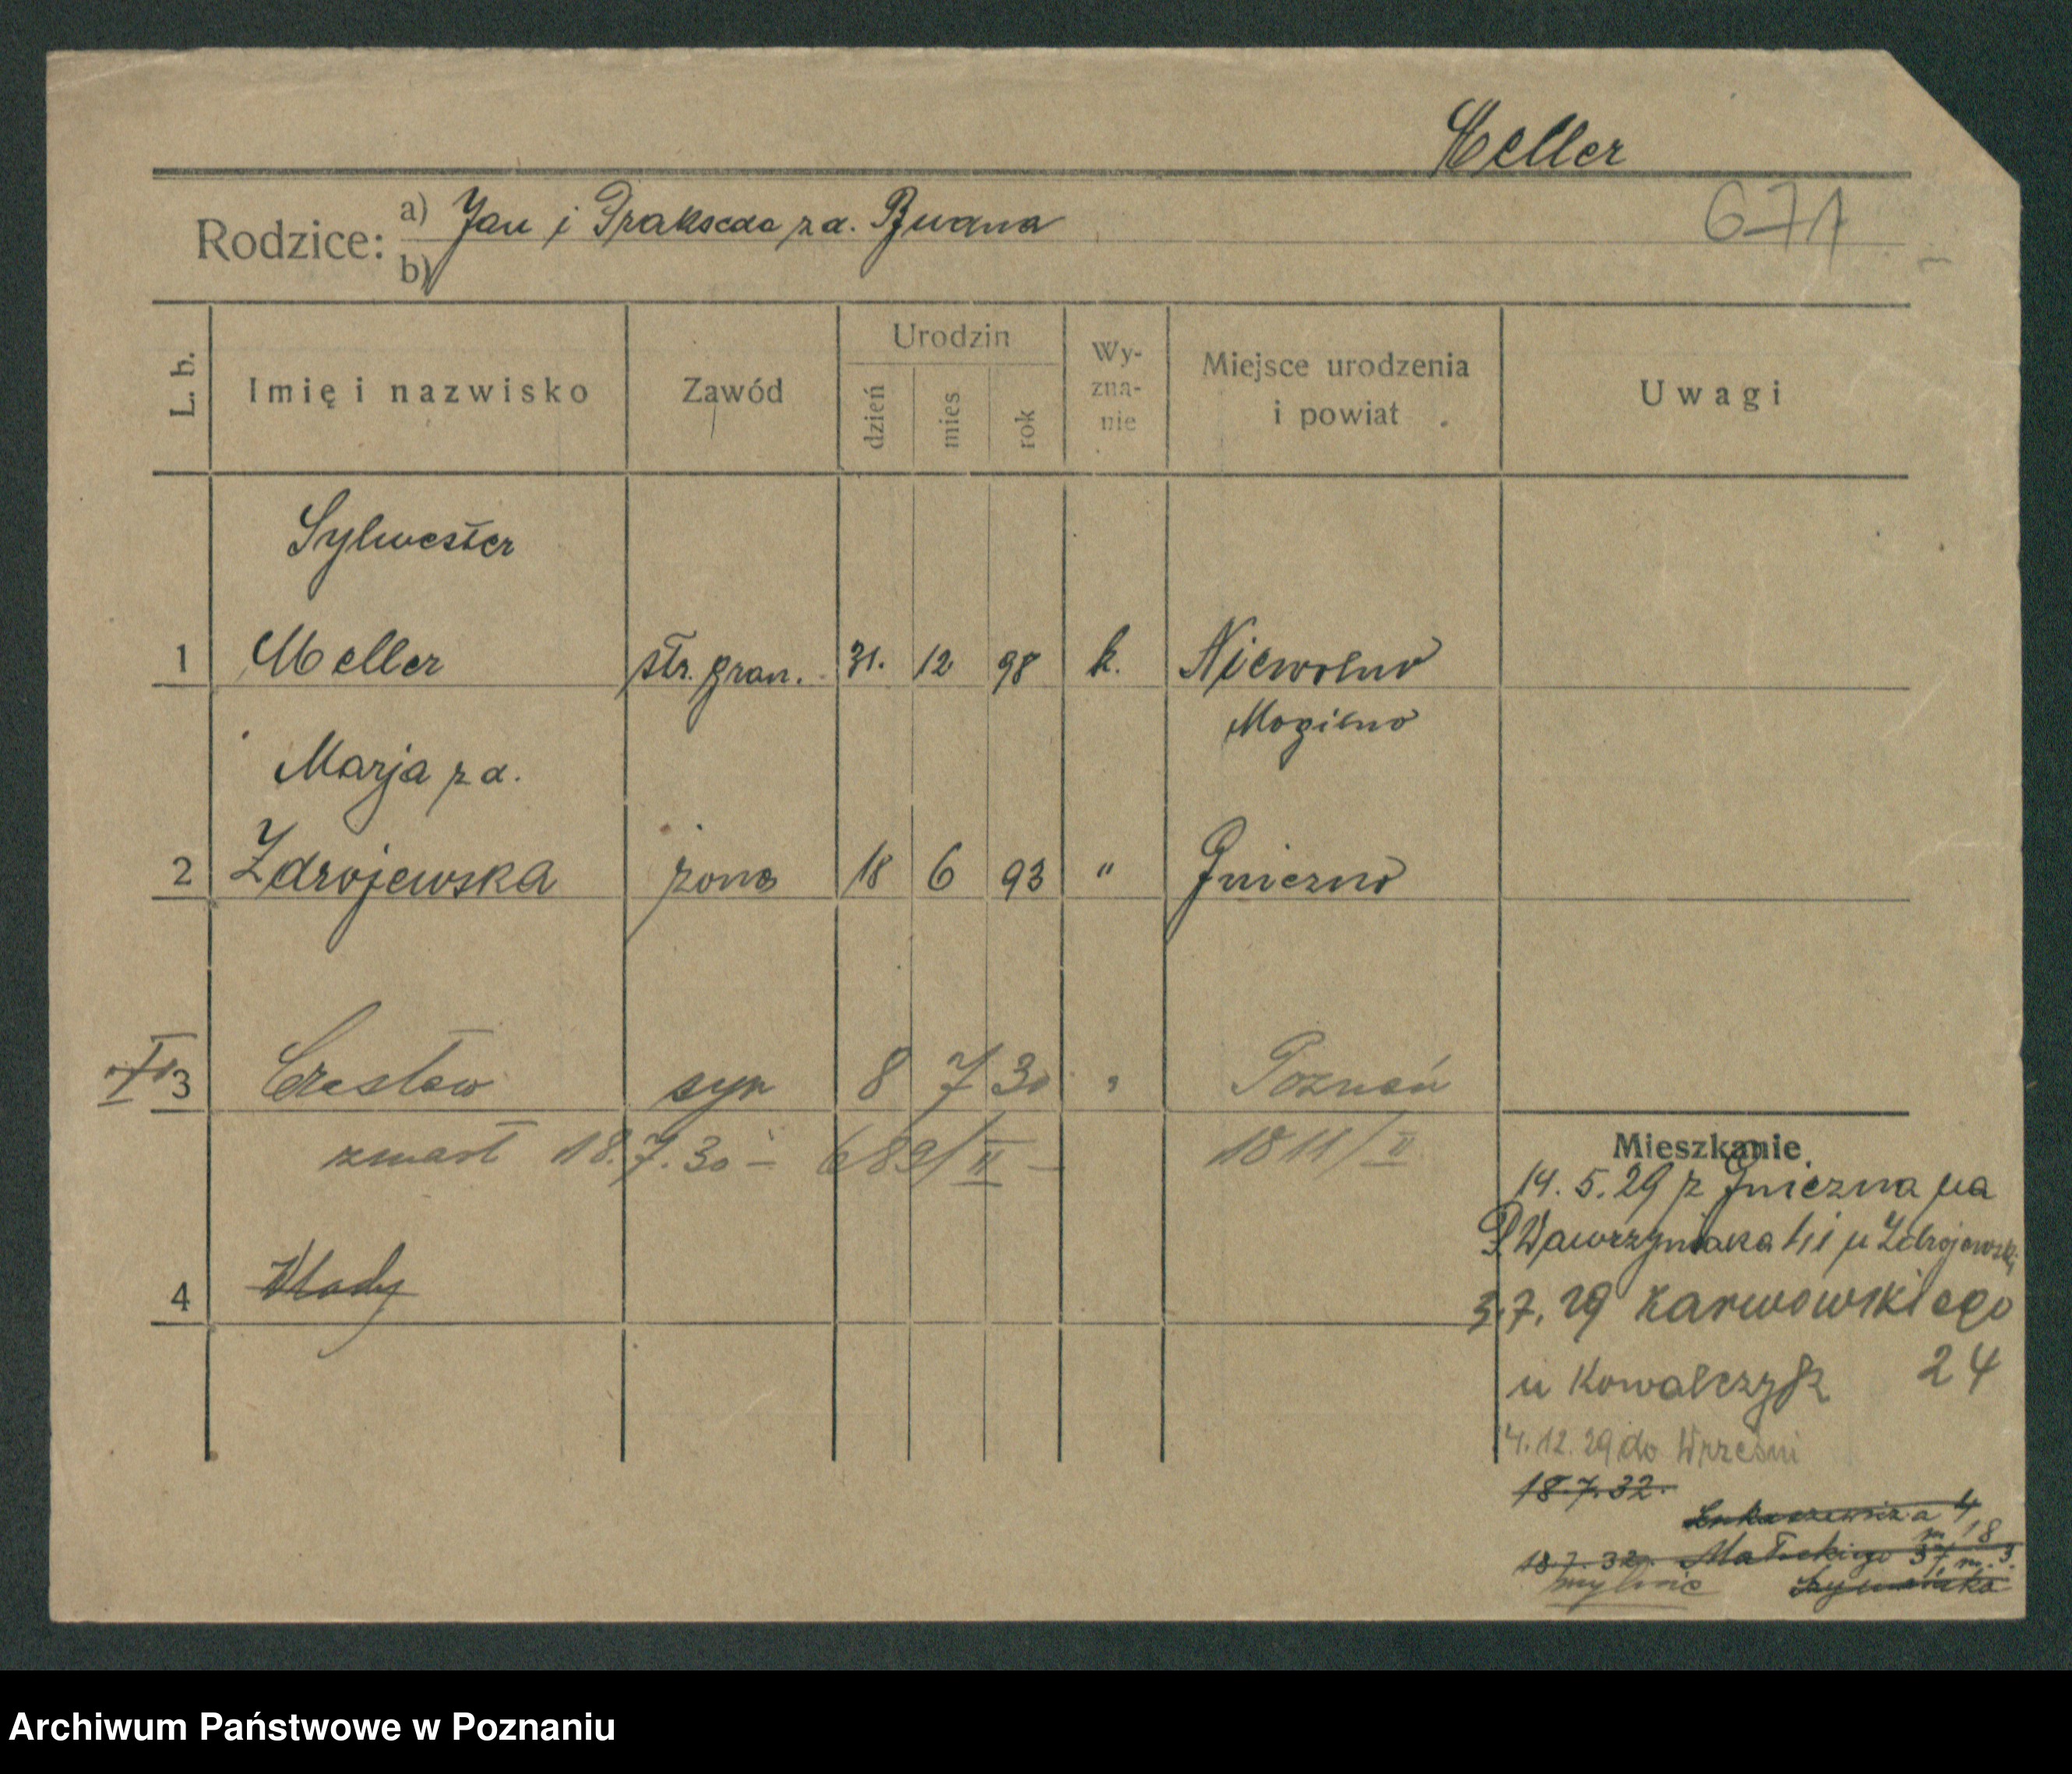 Meller
671
Rodzice: a) Jan i Prakseda z d.
b)
L. b. Imię i nazwisko Zawód Urodzin dzień mies rok Wy-zna-nie Miejsce urodzenia i powiat Uwagi
Sylwester
1 Meller str. gran. 31. 12 98 k. Niewolno
Mogilno
Marja z d.
2 Zdrojewska żona 18 6 93 " Gniezno
3 Czesław syn 8 7 30 " Poznań
zmarł 18.7.30 – 689/II – 1811/II
4 Włady
Mieszkanie
14. 5. 29 z Gniezna na
P. Wawrzyniaka u Zdrojewski
3.7. 29 Karwowskiego
u Kowalczyk 24
4. 12. 29 do Wrześni
18.7.32.
Łukaszewicza 4
m 18
18.7.32. Małeckiego 37 m. 3.
mylnie Szymańska
Archiwum Państwowe w Poznaniu